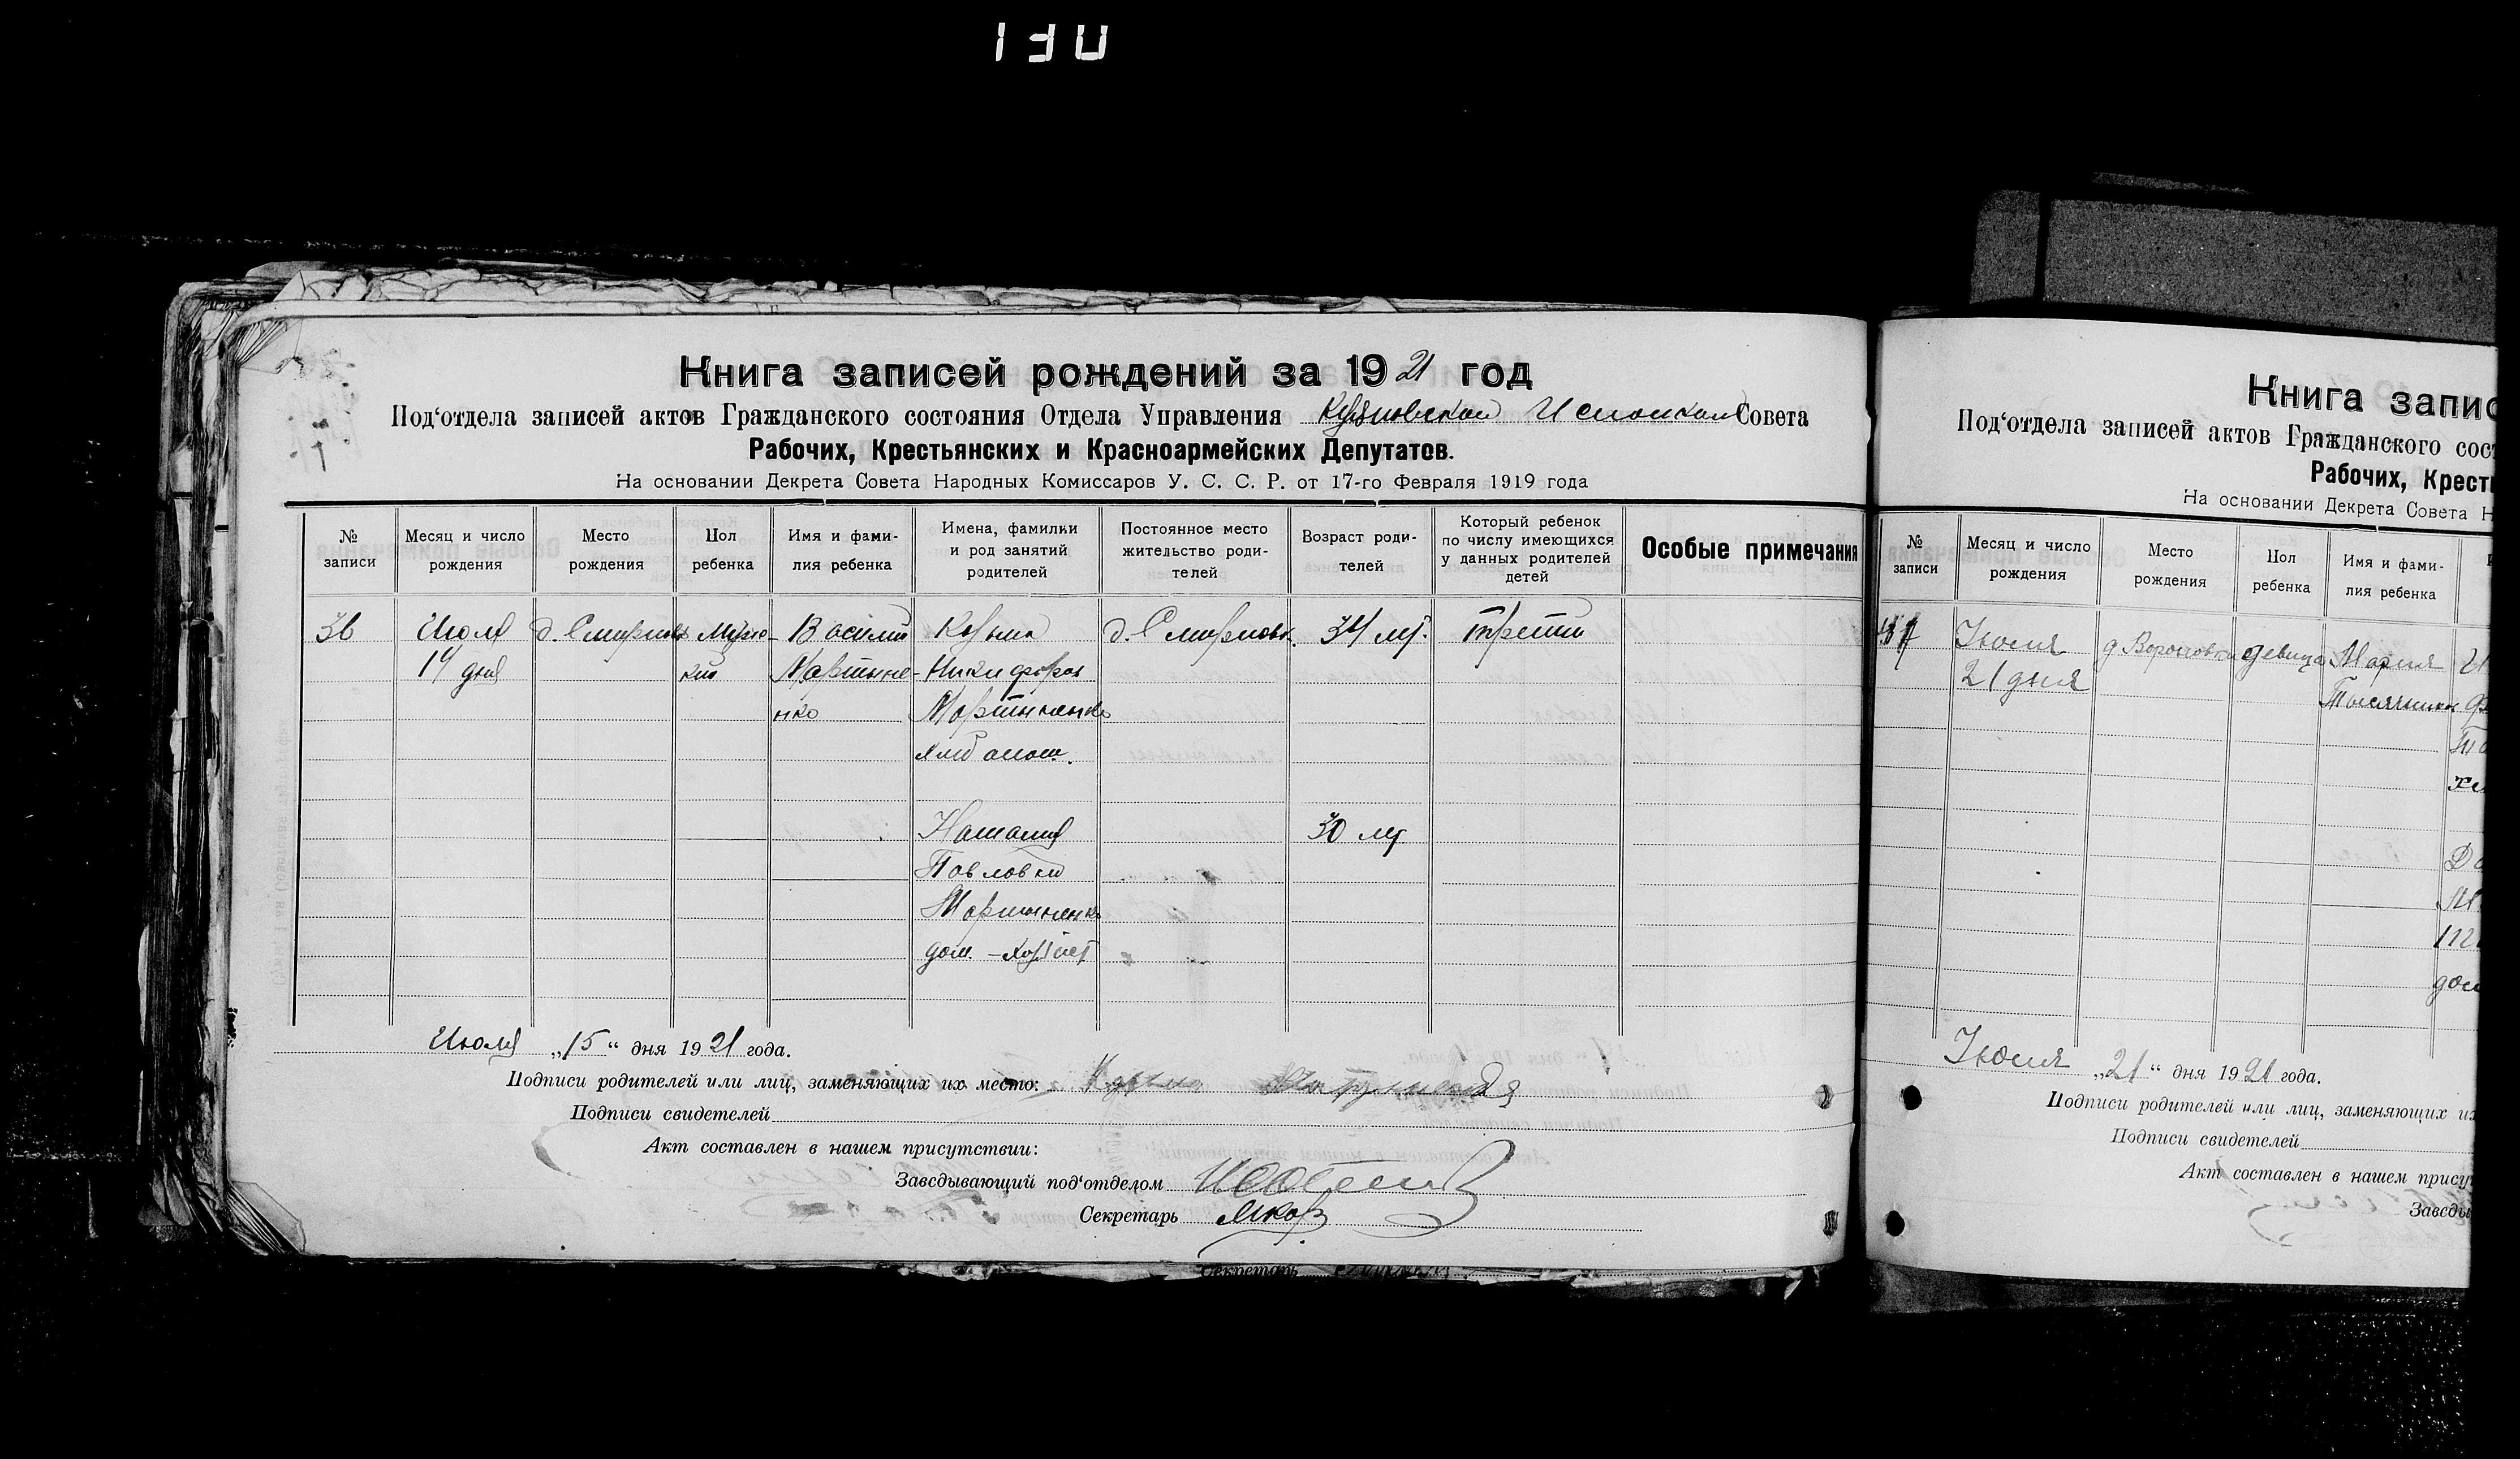 Книга записей рождений за 1921 год
Под‘отдела записей актов Гражданского состояния Отдела Управления Исполком Совета
Рабочих, Крестьянских и Красноармейских Депутатов.
На основании Декрета Совета Народных Комиссаров У. С. С. Р. от 17-го Февраля 1919 года
№ записи
Месяц и число рождения
Место рождения
Пол ребенка
Имя и фами-
лия ребенка
Имена, фамилии
и род занятий
родителей
Постоянное место
жительство роди-
телей
Возраст роди-
телей
Который ребенок
по числу имеющихся
у данных родителей
детей
Особые примечания
36
Июля
14 дня
д. Смирновка
Мужс-
кий
Василий
Мартыне-
нко
Козьма
Никифоров
Мартыненко
хлебопаш.
Наталия
Павловна
Мартыненко
дом. - хозяйст
д. Смирновк.
34 лет.
30 лет
третий
Июля „15“ дня 1921 года.
Подписи родителей или лиц, заменяющих их место: Козьма
Подписи свидетелей
Акт составлен в нашем присутствии:
Заведывающий под‘отделом
Секретарь
Секретарь
Книга запис
Под‘отдела записей актов Гражданского сост
Рабочих, Кресть
На основании Декрета Совета Н
№ записи
Месяц и число
рождения
Место
рождения
Пол
ребенка
Имя и фами-
лия ребенка
37
Июля
21 дня
д Вороновка
девица
Мария
Июля „21“ дня 1921 года.
Подписи родителей или лиц, заменяющих их
Подписи свидетелей
Акт составлен в нашем прису
Заведы